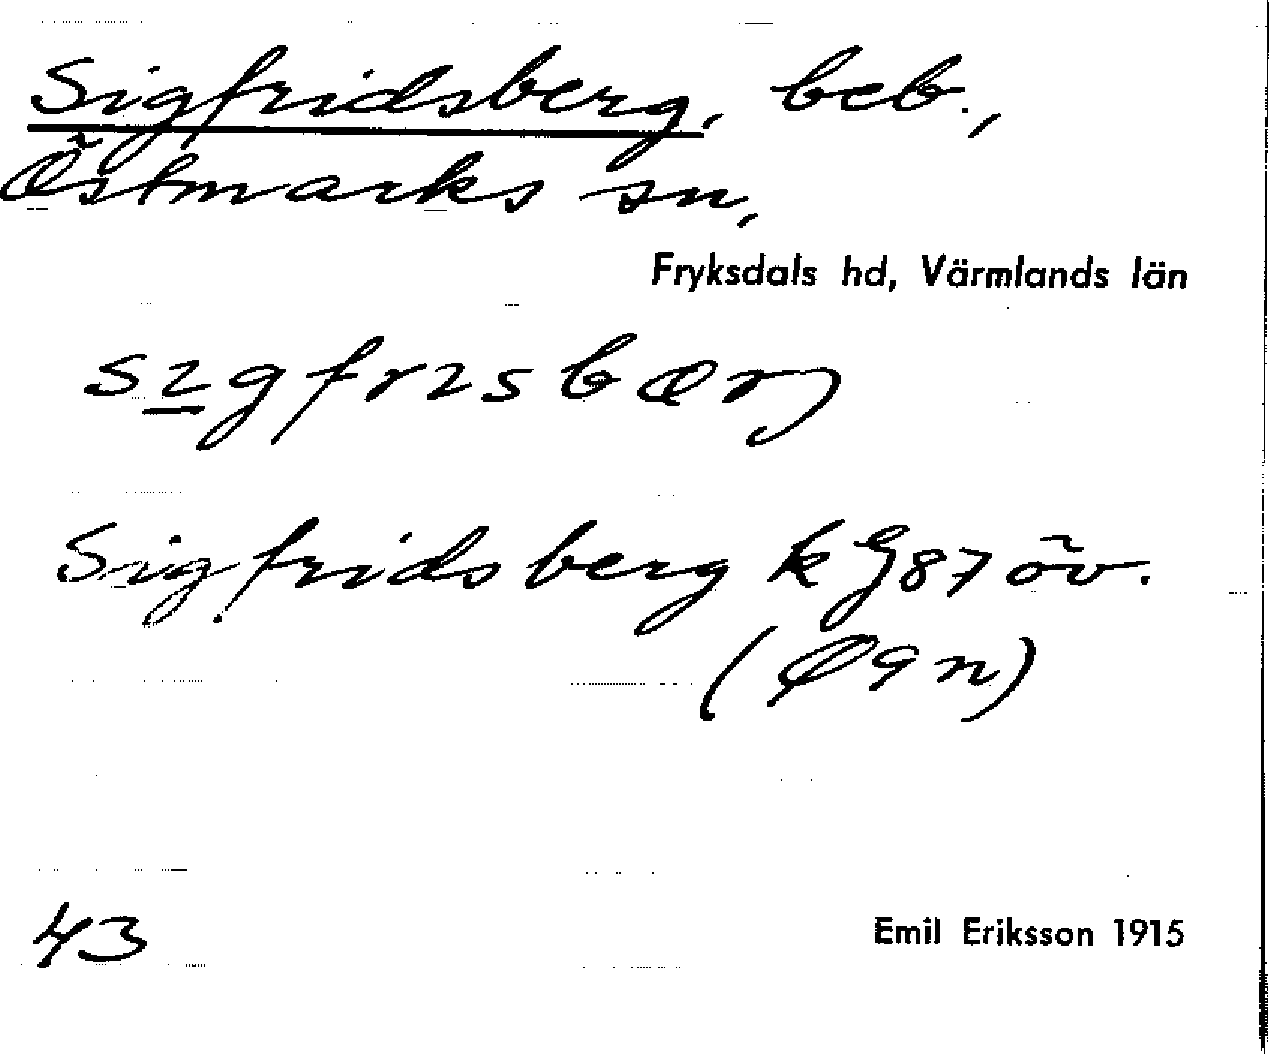 Sigfridsberg, beb.,
Östmarks sn,
Fryksdals hd, Värmlands län
sɪ̱gfrɪsbærj
Sigfridsberg k G87 öv.
(Ø9n)
43
Emil Eriksson 1915